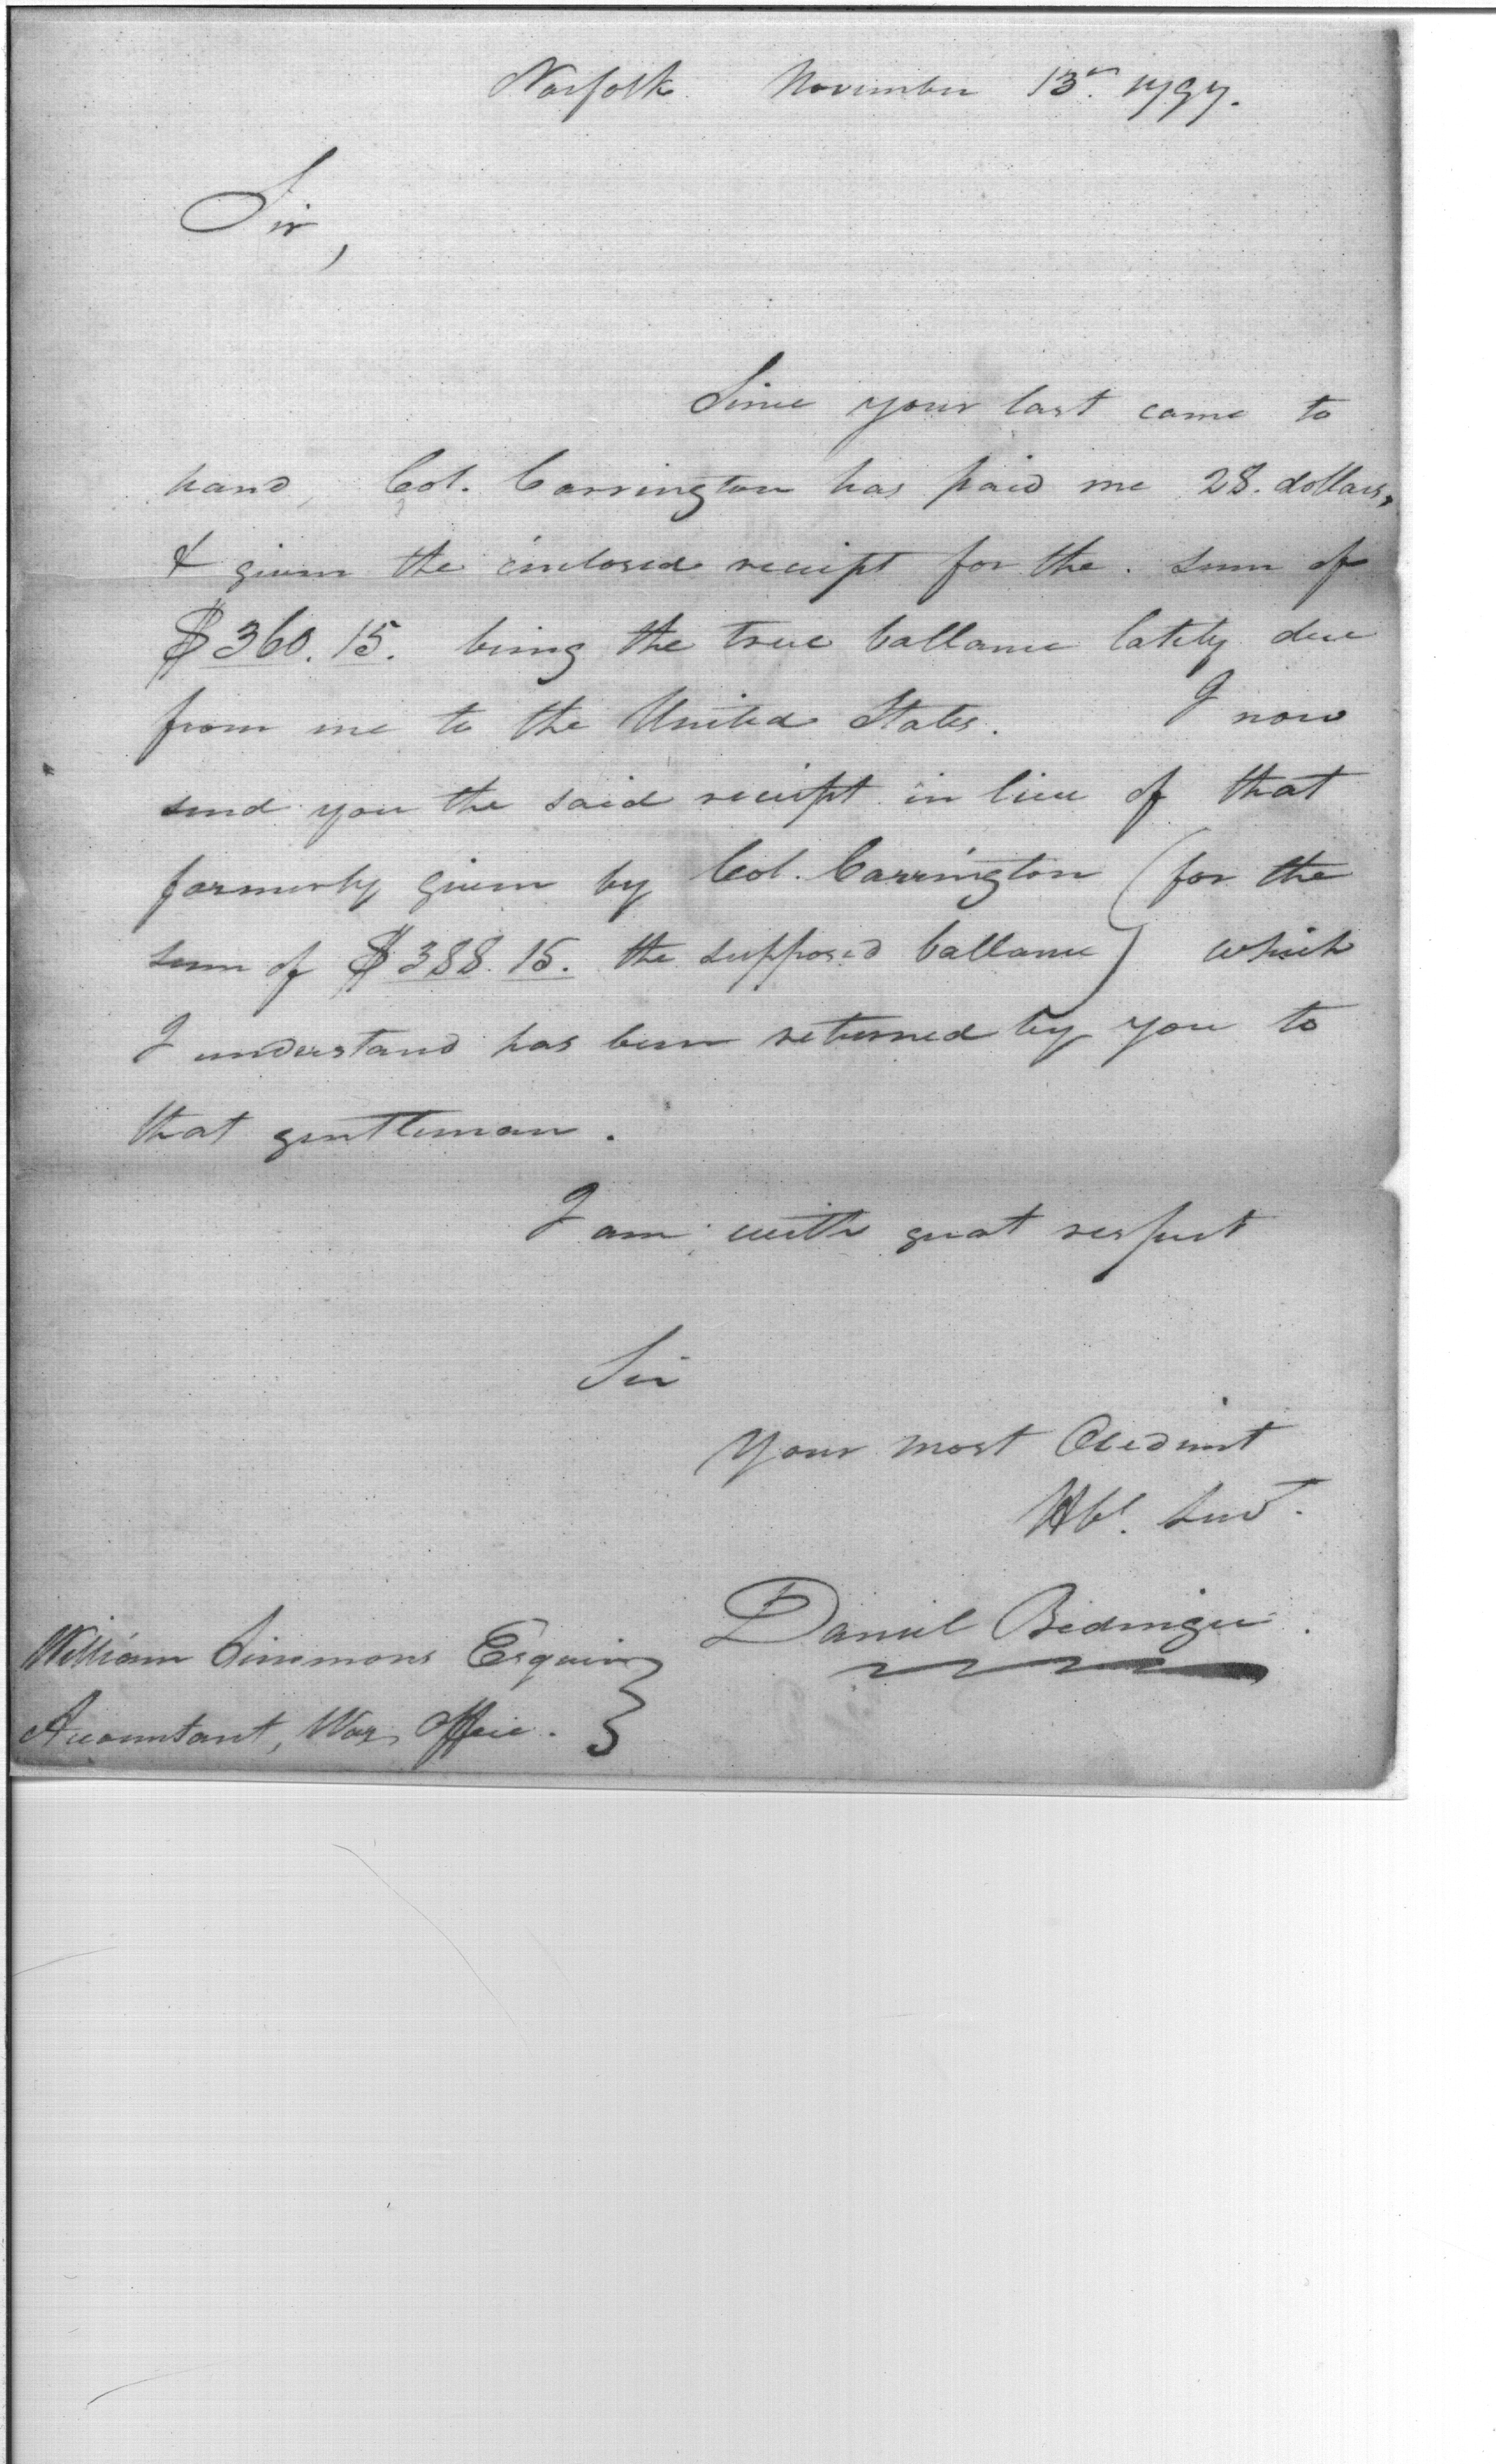 Norfolk November 13th 1797.
Sir,
Since your last came to
hand, Col. Carrington has paid me 28. dollars,
& given the inclosed receipt for the sum of
$360.15. being the true ballance lately due
from me to the United States. I now
send you the said receipt in lieu of that
formerly given by Col. Carrington (for the
sum of $388.15. the supposed ballance) which
I understand has been returned by you to
that gentleman.
I am with great respect
Sir
Your most Obedient
Hbl. Servt.
Daniel Bedinger.
William Simmons Esquire
Accountant, War Office.